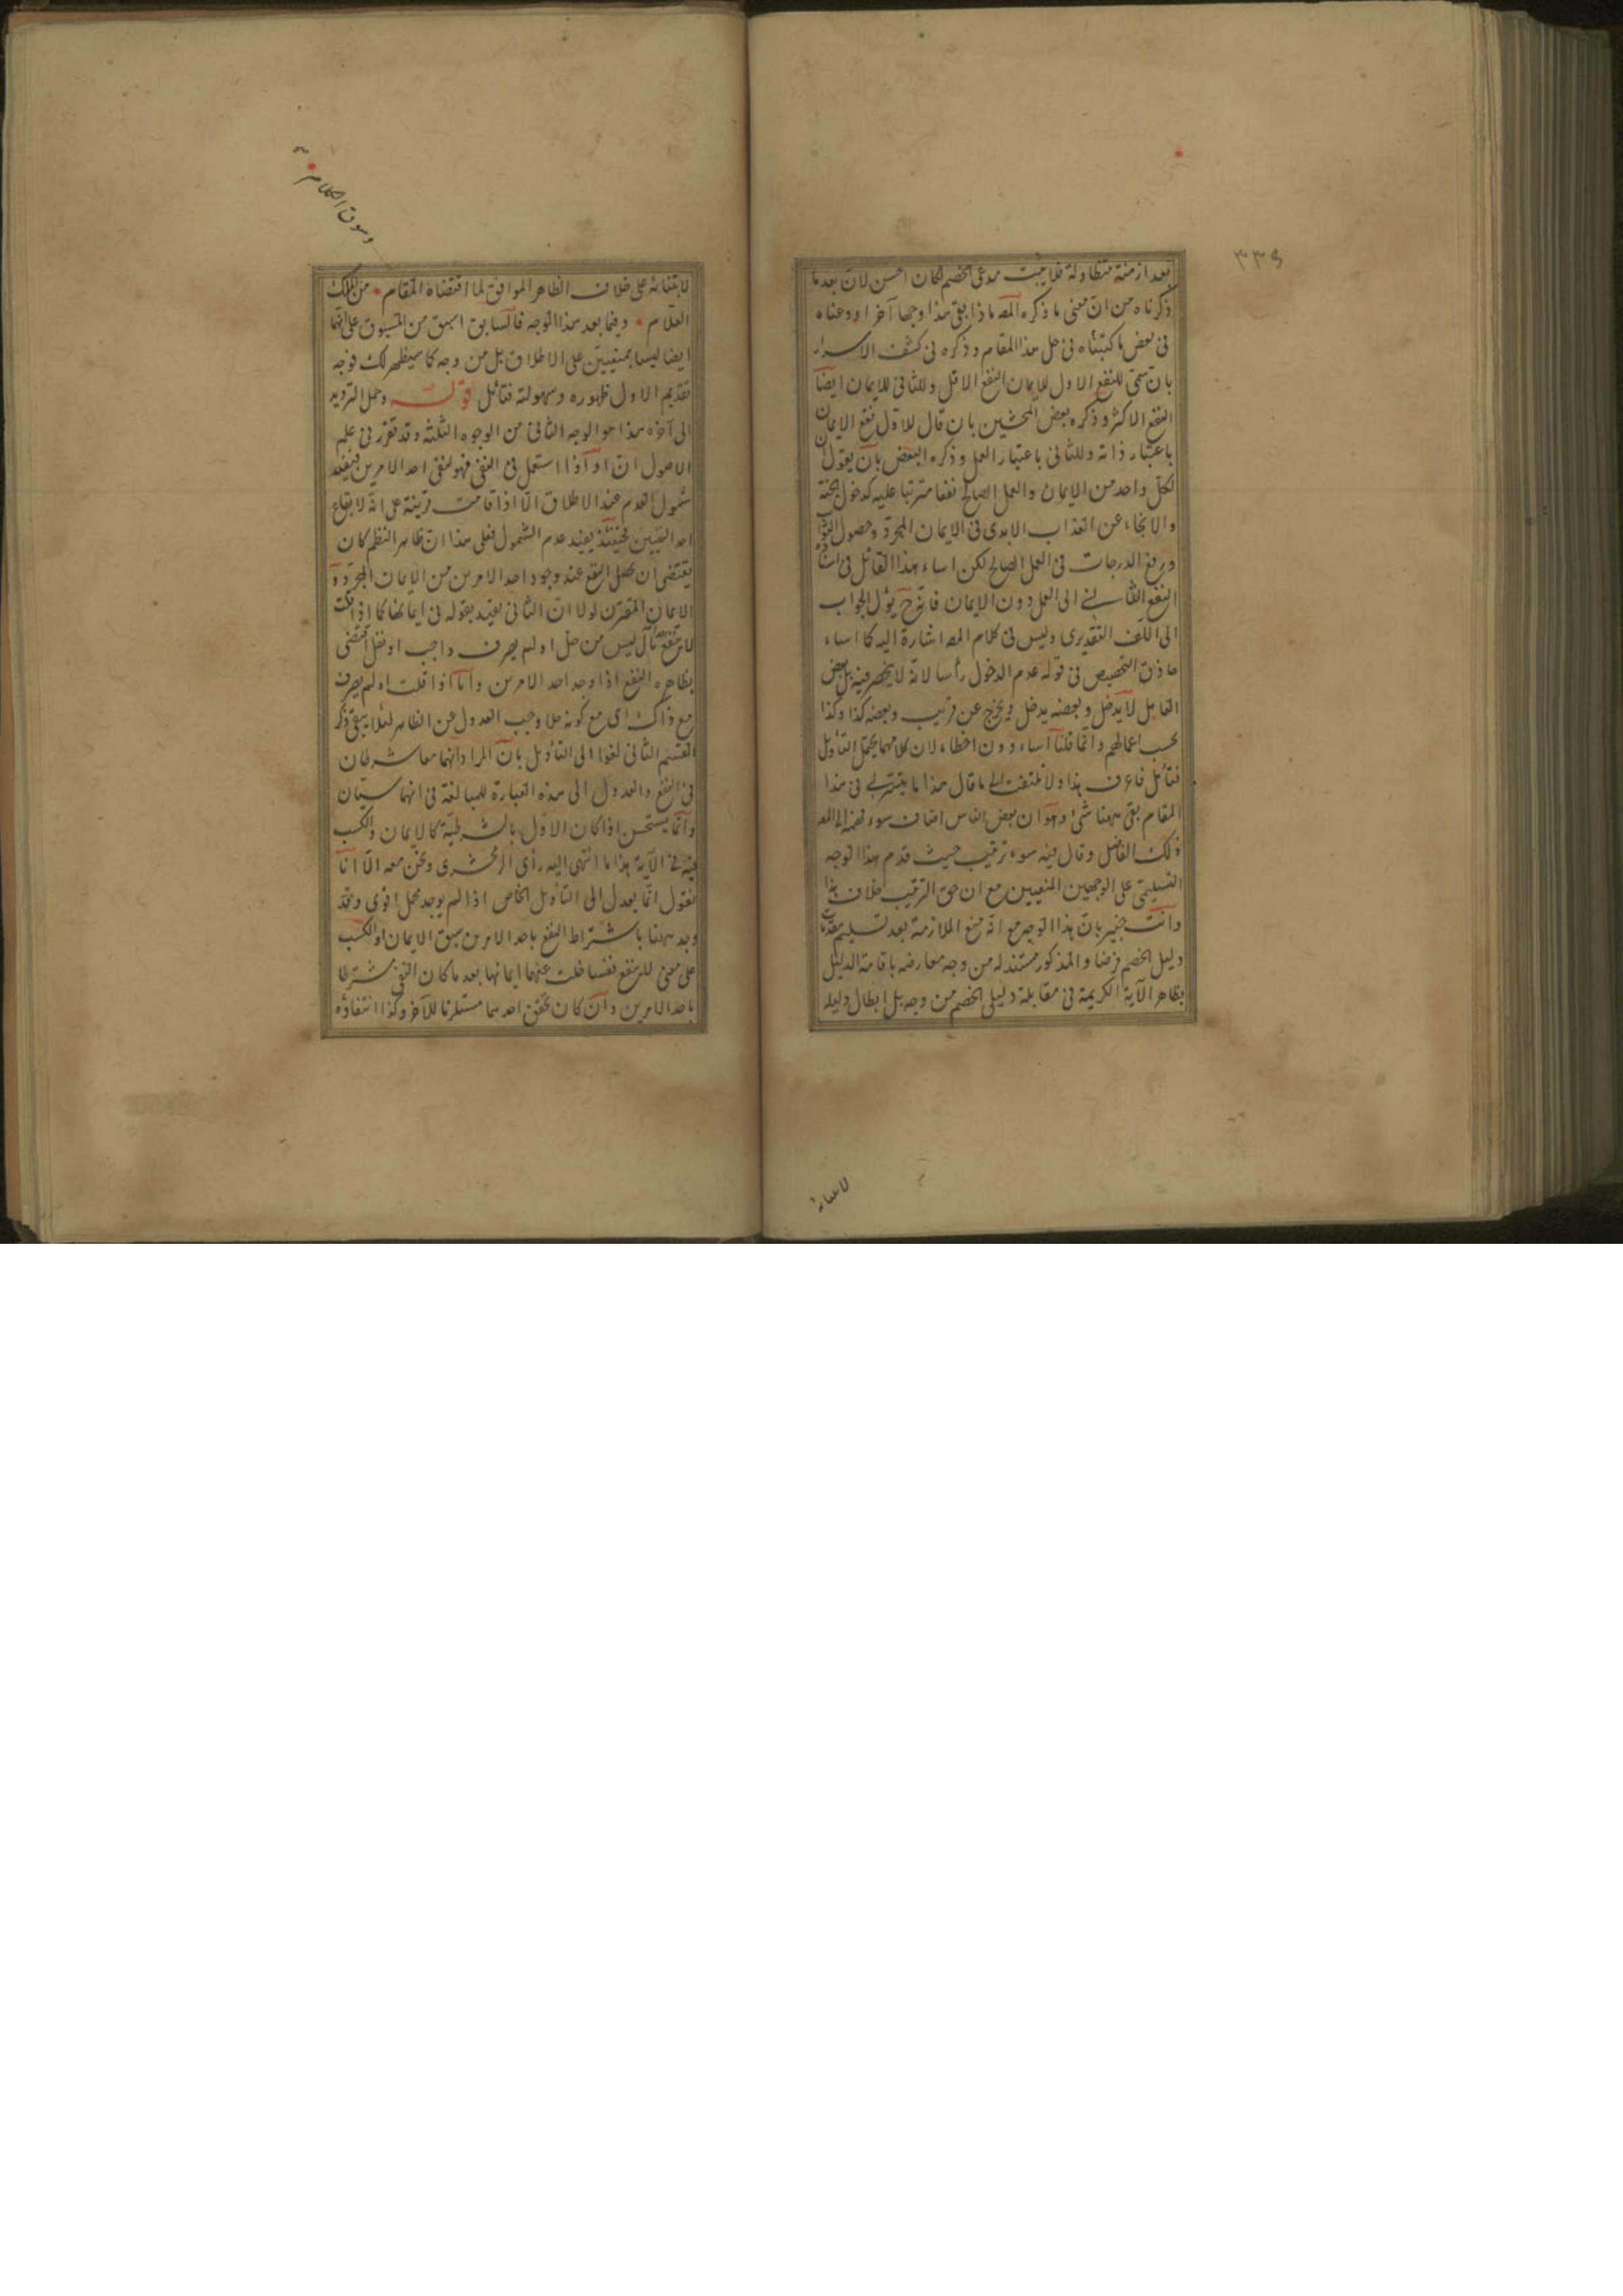 ٣٣٩
بعد ازمنة متطاولة فلا يثبت مدعى الخصم لكان احسن لان بعد ما
ذكرناه من ان معنى ما ذكره المصـ ماذا بقى هذا وجها آخر اودعناه
فى بعض ما كتبناه فى حل هذا المقام وذكره فى كشف الاسرار
بان سمى للنفع الاول للايمان النفع الاقل وللثانى للايمان ايضا
النفع الاكثر وذكره بعض المحشين بان قال للاول نفع الايمان
باعتبار ذاته وللثانى باعتبار العمل وذكره البعض بان يقول
لكل واحد من الايمان والعمل الصالح نفعا مترتبا عليه كدخول الجنة
والانجاء عن العذاب الابدى فى الايمان المجرد وحصول الثواب
ورفع الدرجات فى العمل الصالح لكن اساء هذا القائل فى اسناده
النفع الثانى الى العمل دون الايمان فانه ح يؤل الجواب
الى اللف التقديرى وليس فى كلام المصـ اشارة اليه كما اساء
حاذق التخصيص فى قوله عدم الدخول رأسا لانه لا ينحصر فيه بل بعض
المقابل لا يدخل وبعضه يدخل ويخرج عن قريب وبعضه كذا وكذا
بحسب اعمالهم وانما قلنا اساء دون اخطاء لان كلامهما يحتمل التأويل
فتأمل فاعرف هذا ولا تلتفت الى ما قال هذا ما يتيسر لى فى هذا
المقام بقى ههنا شئ وهو ان بعض الناس اضاف سوء فهمه الى المصـ
ذلك الفاضل وقال فيه سوء ترتيب حيث قدم هذا الوجه
التسليمى على الوجهين المنعيين مع ان حق الترتيب خلاف هذا
وانت خبير بان هذا الوجه مع انه منع الملازمة بعد تسليم مقدمات
دليل الخصم فرضا والمذكور مستند له من وجه معارضه باقامة الدليل
بظاهر الآية الكريمة فى مقابلة دليلى الخصم من وجه بل ابطال دليله
لابتنائه
وسوق الكلام
صح
لابتنائه على خلاف الظاهر الموافق لما اقتضاه المقام من الملك
العلام وفيما بعد هذا الوجه فالسابق اسبق من المسبوق على انهما
ايضا ليسا بمنعيين على الاطلاق بل من وجه كما سيظهر لك فوجه
تقديم الاول ظهوره وسهولته فتأمل قوله وحمل الترديد
الى آخره هذا هو الوجه الثانى من الوجوه الثلثة وقد تقرر فى علم
الاصول ان او اذا استعمل فى النفى فهو لنفى احد الامرين فيفيد
شمول العدم عند الاطلاق الا اذا قامت قرينة على انه لايقاع
احد النفيين فحينئذ يفيد عدم الشمول فعلى هذا ان ظاهر النظم كان
يقتضى ان يحصل النفع عند وجود احد الامرين من الايمان المجرد و
الايمان المقترن لولا ان الثانى يقيد بقوله فى ايمانها كما اذا قلت
لا ينفع مال ليس من حل او لم يصرف واجب او نفل اقتضى
بظاهره النفع اذا وجد احد الامرين واما اذا قلت او لم يصرف
مع ذاك اى مع كونه حلا وجب العدول عن الظاهر لئلا يبقى ذكر
القسيم الثانى لغوا الى التأويل بان المراد انهما معا شرطان
فى النفع والعدول الى هذه العبارة للمبالغة فى انهما سيان
وانما يستحسن اذا كان الاول بالشرطية كالايمان والكسب
فيه فى الآية هذا ما انتهى اليه رأى الزمخشرى ونحن معه الا انا
نقول انما يعدل الى التأويل الخاص اذا لم يوجد محمل اقوى وقد
وجد ههنا باشتراط النفع باحد الامرين سبق الايمان او الكسب
على معنى لا ينفع نفسا خلت عنهما ايمانها بعد ما كان النفى شرطا
باحد الامرين وان كان تحقق احدهما مستلزما للآخر وكذا انتفاؤه